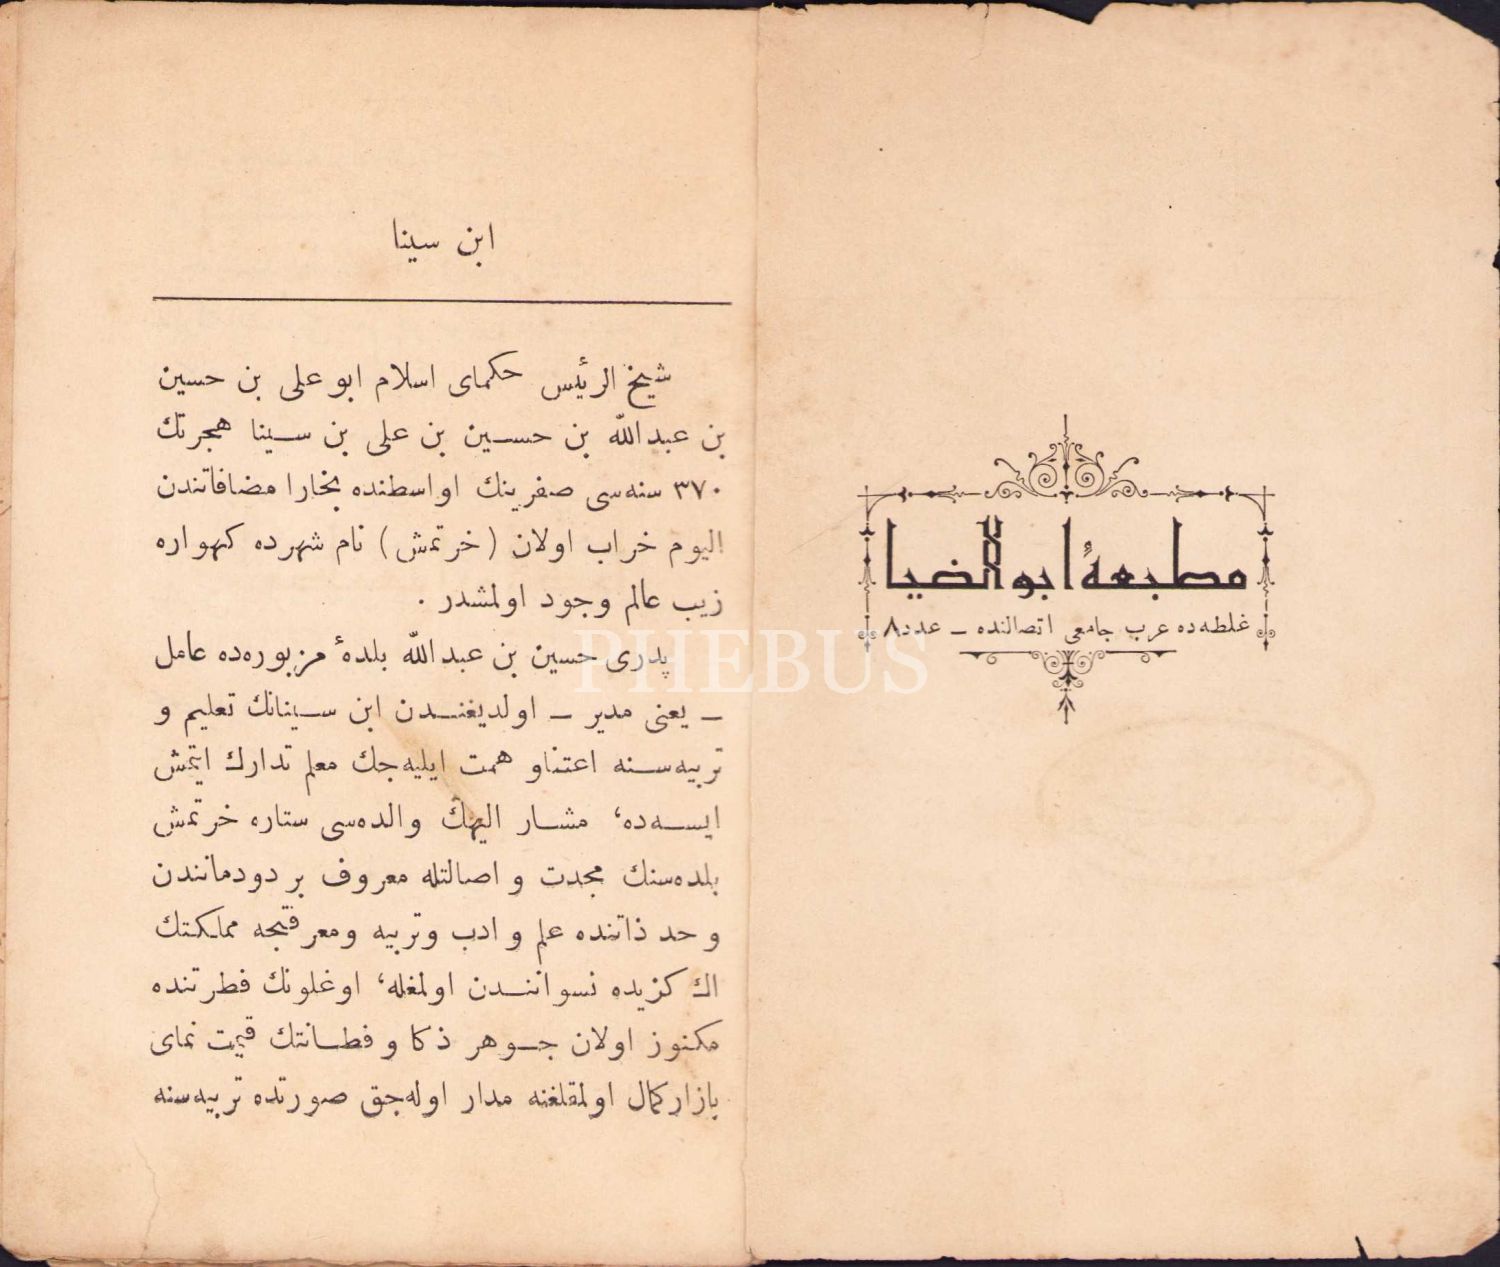 مطبعهٔ ابوالضیا
غلطه‌ده عرب جامعی اتصالنده ـ عدد ٨
ابن سینا
شیخ الرئیس حکمای اسلام ابو علی بن حسین
بن عبدالله بن حسین بن علی بن سینا هجرتك
٣٧٠ سنه‌سی صفرینك اواسطنده بخارا مضافاتندن
الیوم خراب اولان (خرتمش) نام شهرده کهواره
زیب عالم وجود اولمشدر .
پدری حسین بن عبدالله بلدهٔ مزبوره‌ده عامل
ـ یعنی مدیر ـ اولدیغندن ابن سینانك تعلیم و
تربیه‌سنه اعتناو همت ایلیه‌جك معلم تدارك ایتمش
ایسه‌ده، مشار الیهك والده‌سی ستاره خرتمش
بلده‌سنك مجدت و اصالتله معروف بر دودمانندن
و حد ذاتنده علم و ادب وتربیه ومعرفتجه مملکتك
اك کزیده نسوانندن اولمغله، اوغلونك فطرتنده
مکنوز اولان جوهر ذکا و فطانتك قیمت نمای
بازار کمال اولمقلغنه مدار اوله‌جق صورتده تربیه‌سنه
PHEBUS